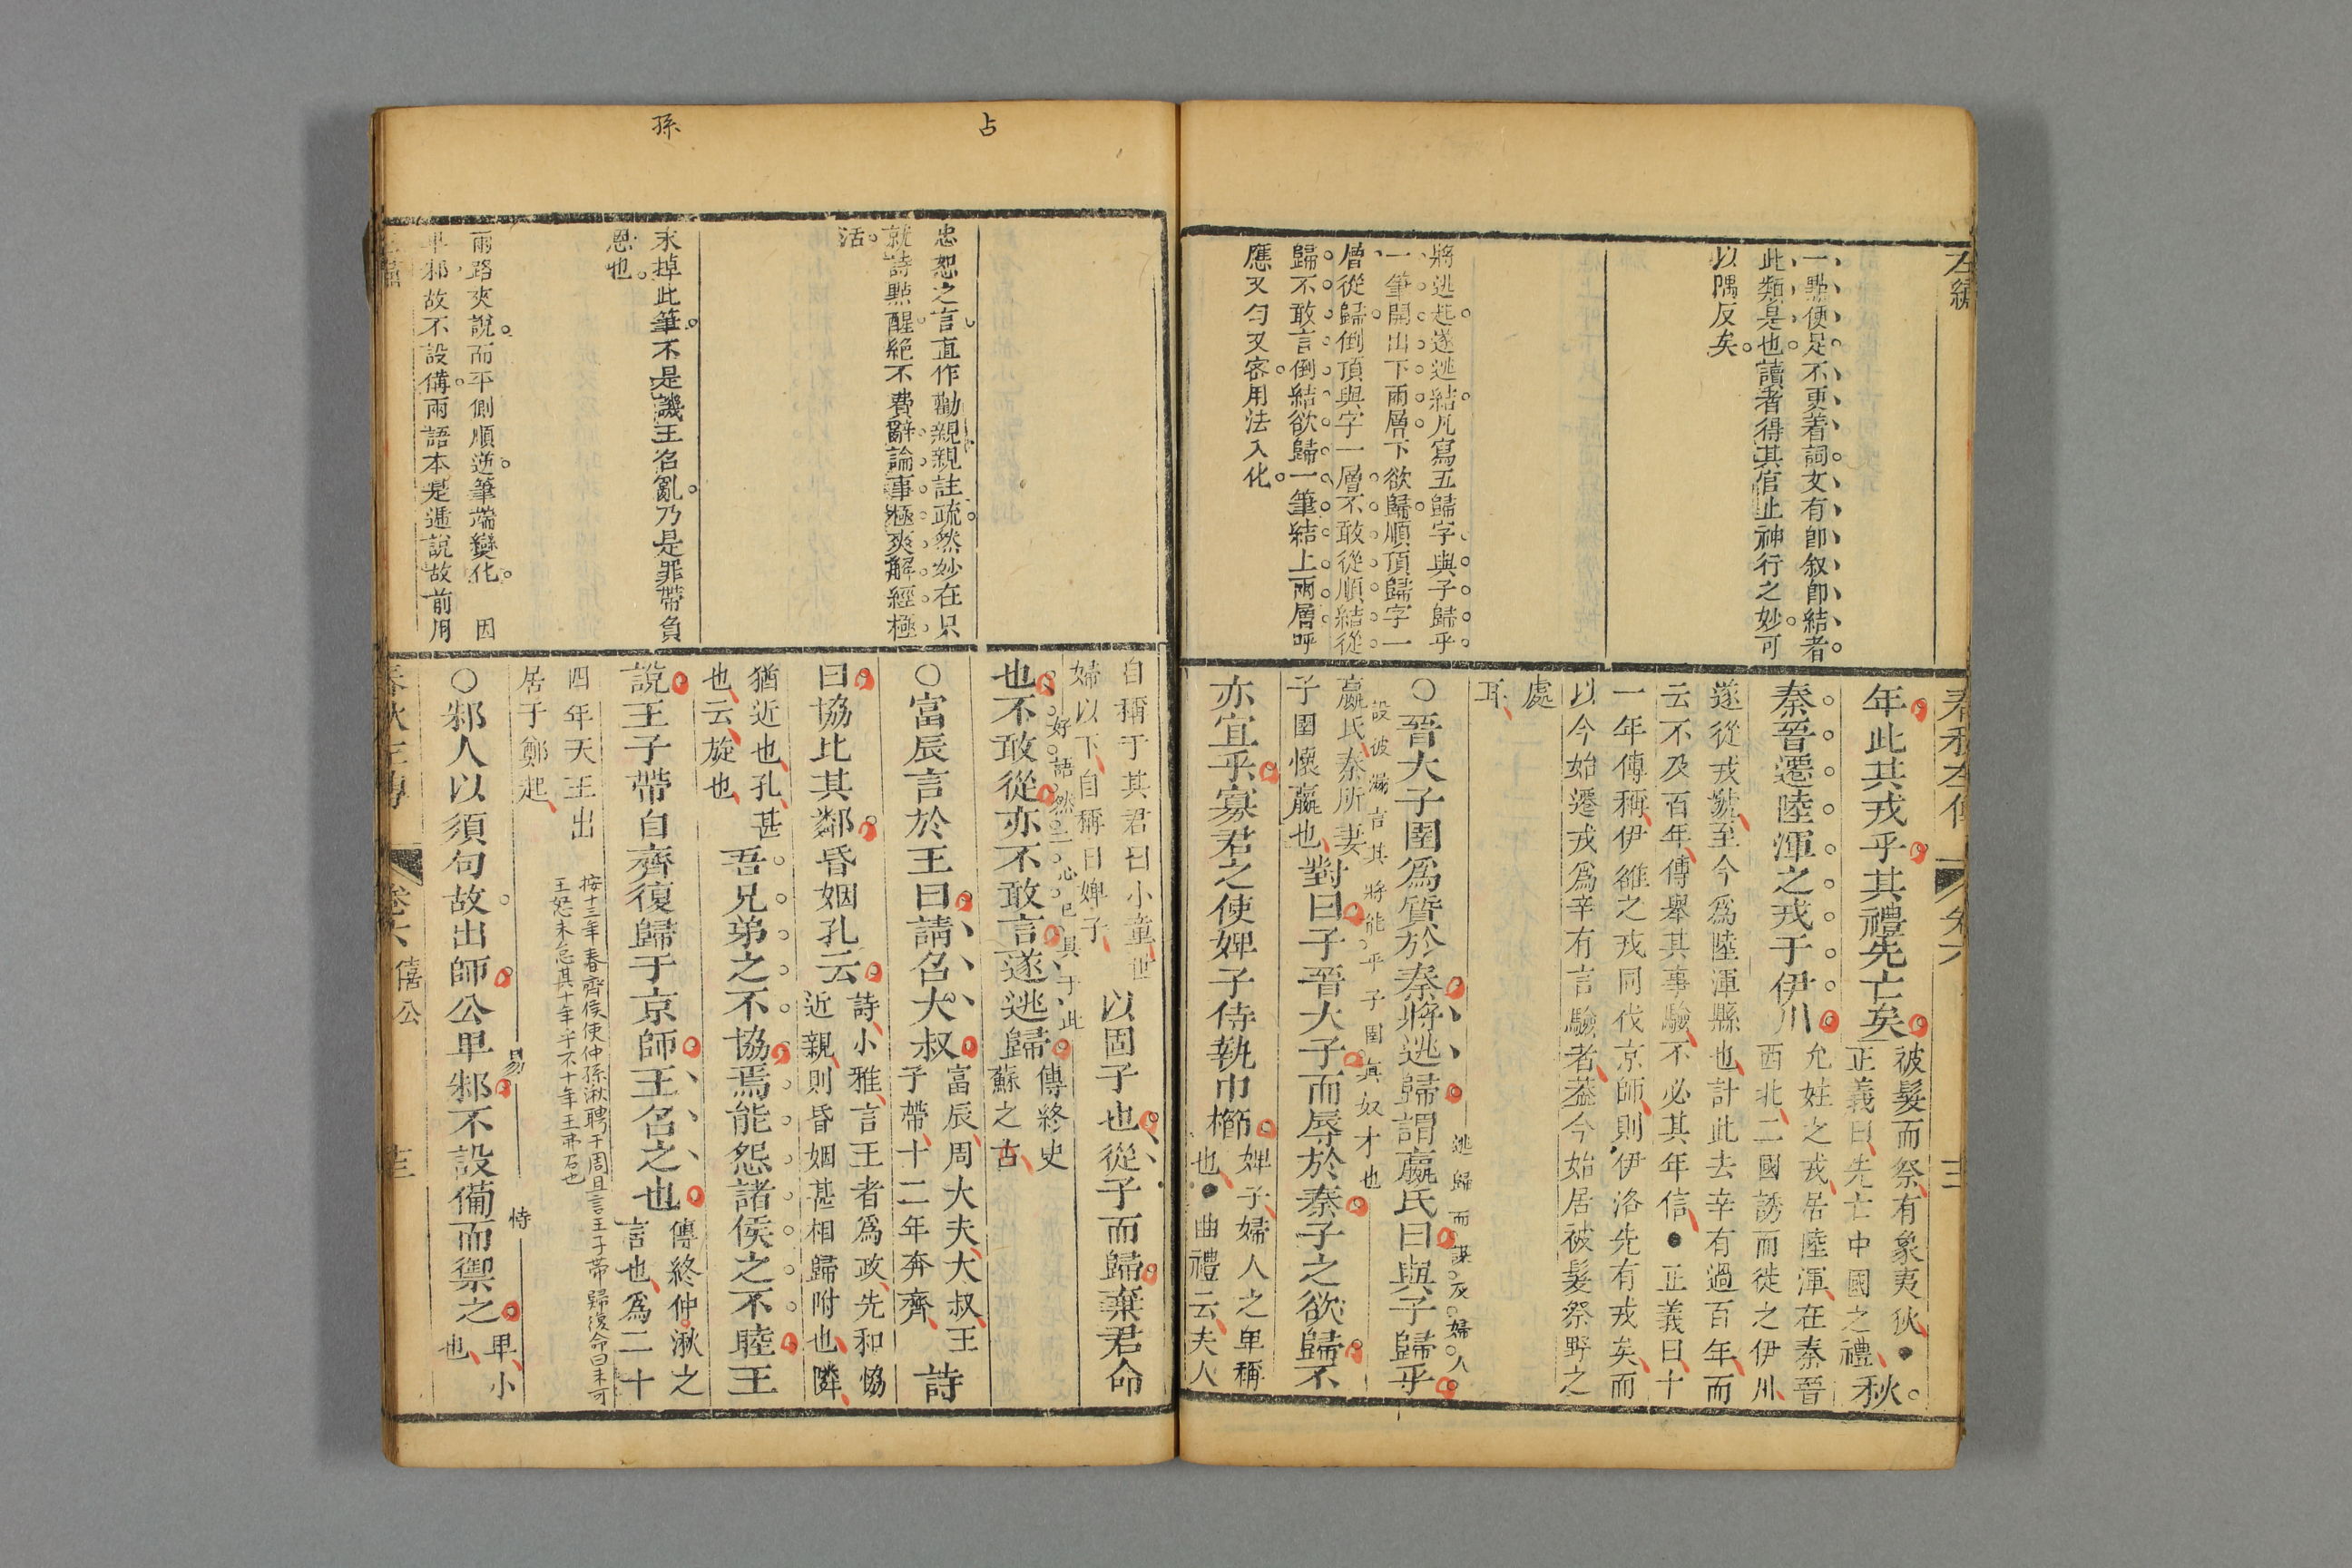 左繡
一點便足不更着詞文有卽叙卽結者
此類是也讀者得其官止神行之妙可
以隅反矣
將逃起遂逃結凡寫五歸字與子歸乎
一筆開出下兩層下欲歸順頂歸字一
層從歸倒頂與字一層不敢從順結從
歸不敢言倒結欲歸一筆結上兩層呼
應又勻又密用法入化
春秋左傳
卷六
年此其戎乎其禮先亡矣
被髮而祭有象夷狄●
正義曰先亡中國之禮
秋
秦晉遷陸渾之戎于伊川
允姓之戎居陸渾在秦晉
西北二國誘而徙之伊川
遂從戎號至今爲陸渾縣也計此去辛有過百年而
云不及百年傳舉其事驗不必其年信●正義曰十
一年傳稱伊雒之戎同伐京師則伊洛先有戎矣而
以今始遷戎爲辛有言驗者葢今始居被髮祭野之
處
耳
逃歸而謀及婦人
○晉大子圉爲質於秦將逃歸謂嬴氏曰與子歸乎
設彼漏言其將能乎子圉眞奴才也
嬴氏秦所妻
子圉懷嬴也
對曰子晉大子而辱於秦子之欲歸不
亦宜乎寡君之使婢子侍執巾櫛
婢子婦人之卑稱
也●曲禮云夫人
占
孫
忠恕之言直作勸親親註疏然妙在只
就詩點醒絶不費辭論事極爽解經極
活
末掉此筆不是譏王召亂乃是罪帶負
恩也
兩路夾說而平側順逆筆端變化 因
卑邾故不設備兩語本是遞說故前用
自稱于其君曰小童世
婦以下自稱曰婢子
以固子也從子而歸棄君命
好語然二心已具于此
也不敢從亦不敢言遂逃歸
傳終史
蘇之占
○富辰言於王曰請召大叔
富辰周大夫大叔王
子帶十二年奔齊
詩
曰協比其鄰昏姻孔云
詩小雅言王者爲政先和協
近親則昏姻甚相歸附也隣
猶近也孔甚
也云旋也
吾兄弟之不協焉能怨諸侯之不睦王
說王子帶自齊復歸于京師王召之也
傳終仲湫之
言也爲二十
四年天王出
居于鄭起
按十三年春齊侯使仲孫湫聘于周且言王子帶歸復命曰未可
王怒未怠其十年乎不十年王弗召也
易
恃
○邾人以須句故出師公卑邾不設備而禦之
卑小
也
春秋左傳
卷六
僖公